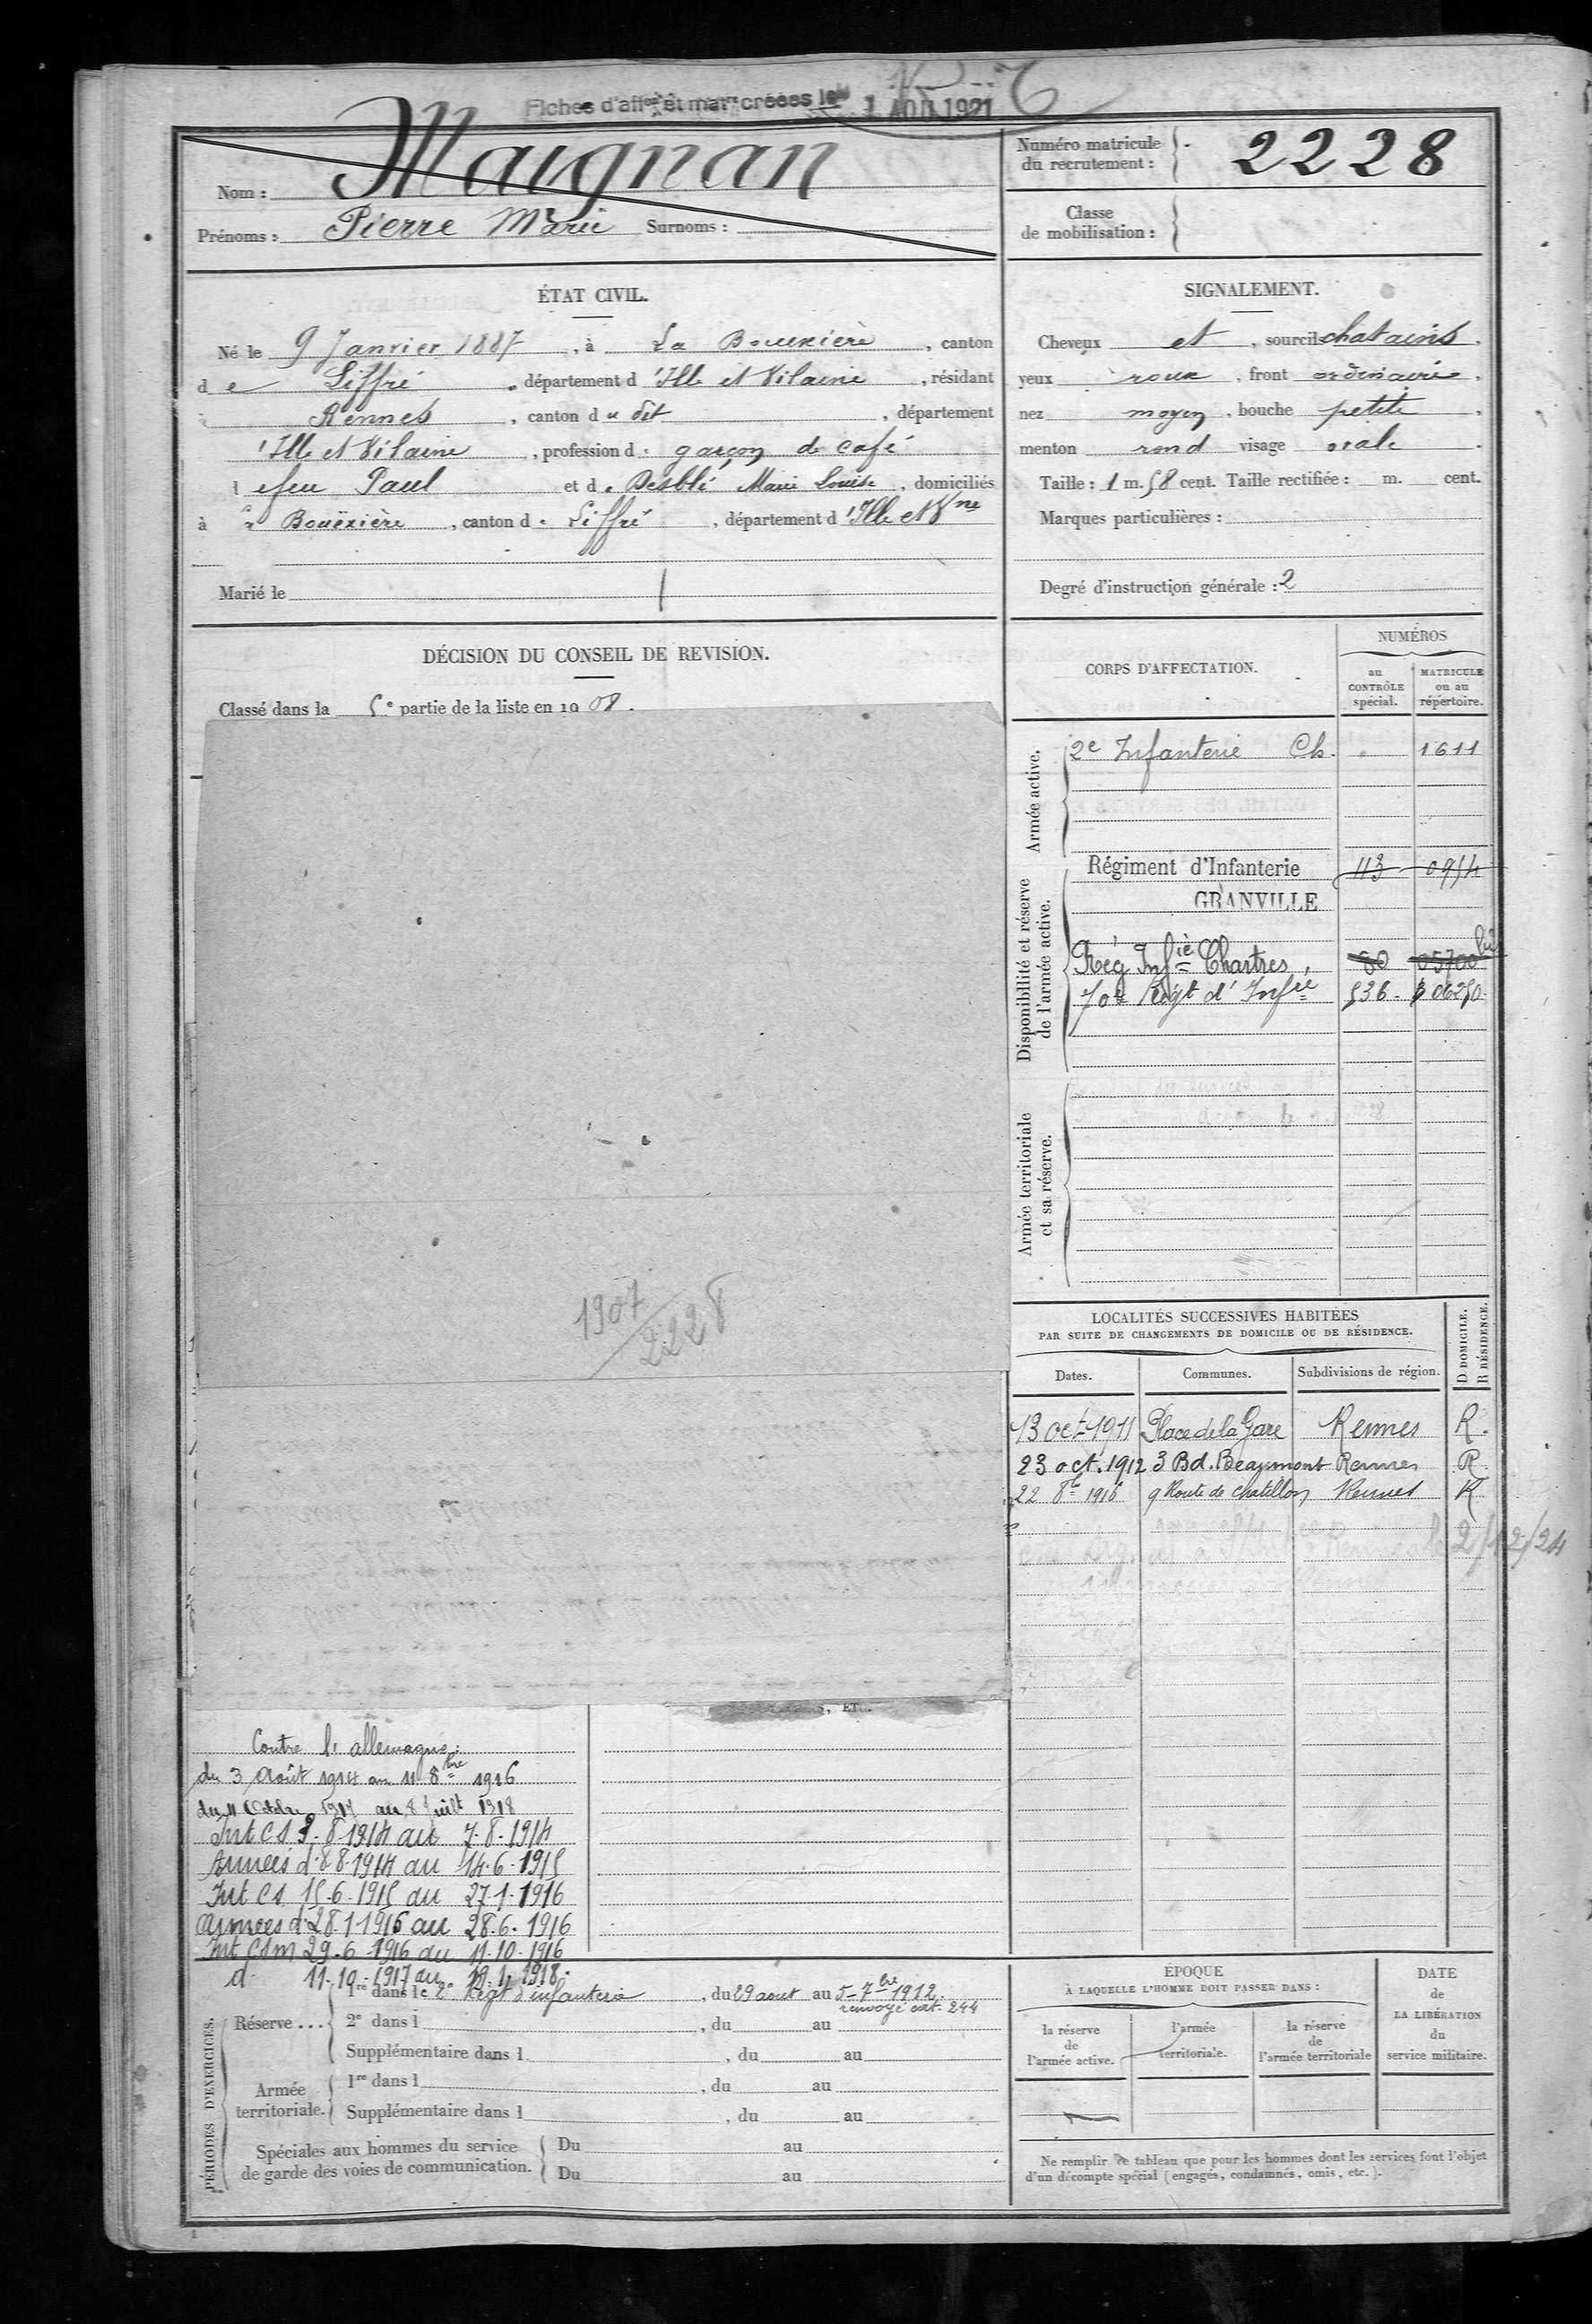 Fiches d'aff^on et mat^le créées le 1 AOU 1921
Nom : Maignan
Prénoms : Pierre Marie Surnoms :
Numéro matricule
du recrutement : 2228
Classe
de mobilisation :
ÉTAT CIVIL.
Né le 9 Janvier 1887, à La Bouexière, canton
de Liffré, département d'Ille et Vilaine, résidant
Rennes, canton du dit, département
'Ille et Vilaine, profession d garçon de café
feu Paul et de Desblé Marie Louise, domiciliés
à La Bouëxière, canton de Liffré, département d'Ille et V^ne
Marié le
SIGNALEMENT.
Cheveux et, sourcils chatains,
yeux roux, front ordinaire,
nez moyen, bouche petite,
menton rond visage ovale.
Taille : 1 m. 58 cent. Taille rectifiée : m. cent.
Marques particulières :
Degré d'instruction générale : 2
DÉCISION DU CONSEIL DE REVISION.
Classé dans la 5e partie de la liste en 1908.
1907
2228
CORPS D'AFFECTATION.
NUMÉROS
au
CONTRÔLE
spécial.
MATRICULE
ou au
répertoire.
Armée active.
2e Infanterie Ch. 1611
Disponibilité et réserve
de l'armée active.
Régiment d'Infanterie 113 0954
GRANVILLE
Rég Inf^ie Chartres, 80 05700 bis
70e Rég^t d'Inf^ie 536 06250
Armée territoriale
et sa réserve.
LOCALITÉS SUCCESSIVES HABITÉES
PAR SUITE DE CHANGEMENTS DE DOMICILE OU DE RÉSIDENCE.
D DOMICILE.
R RÉSIDENCE.
Dates. Communes. Subdivisions de région.
13 oct 1911 Place de la Gare Rennes R.
23 oct. 1912 3 Bd. Beaumont Rennes R
22 8bre 1916 9 Route de Chatillon Rennes R
2/12/24
Contre l'allemagne :
du 3 Août 1914 au 11 8bre 1916
du 11 Octobre 1917 au 8 Juillt 1918
Int CS 3-8-1914 au 7-8-1914
Armées d. 8 8-1914 au 14-6-1915
Int CS 15-6-1915 au 27-1-1916
Armées d. 28-1-1916 au 28-6-1916
Int CSm 29-6-1916 au 11-10-1916
d. 11-10-1917 au 19-1-1918.
PÉRIODES D'EXERCICES.
Réserve ...
1re dans le 2e Régt d'infanterie, du 29 aout au 5-7bre 1912.
renvoyé art. 244
2e dans l, du au
Supplémentaire dans l, du au
Armée
territoriale.
1re dans l, du au
Supplémentaire dans l, du au
Spéciales aux hommes du service
de garde des voies de communication.
Du au
Du au
ÉPOQUE
À LAQUELLE L'HOMME DOIT PASSER DANS :
la réserve
de
l'armée active.
l'armée
territoriale.
la réserve
de
l'armée territoriale
DATE
de
LA LIBÉRATION
du
service militaire.
Ne remplir ce tableau que pour les hommes dont les services font l'objet
d'un décompte spécial (engagés, condamnés, omis, etc.).